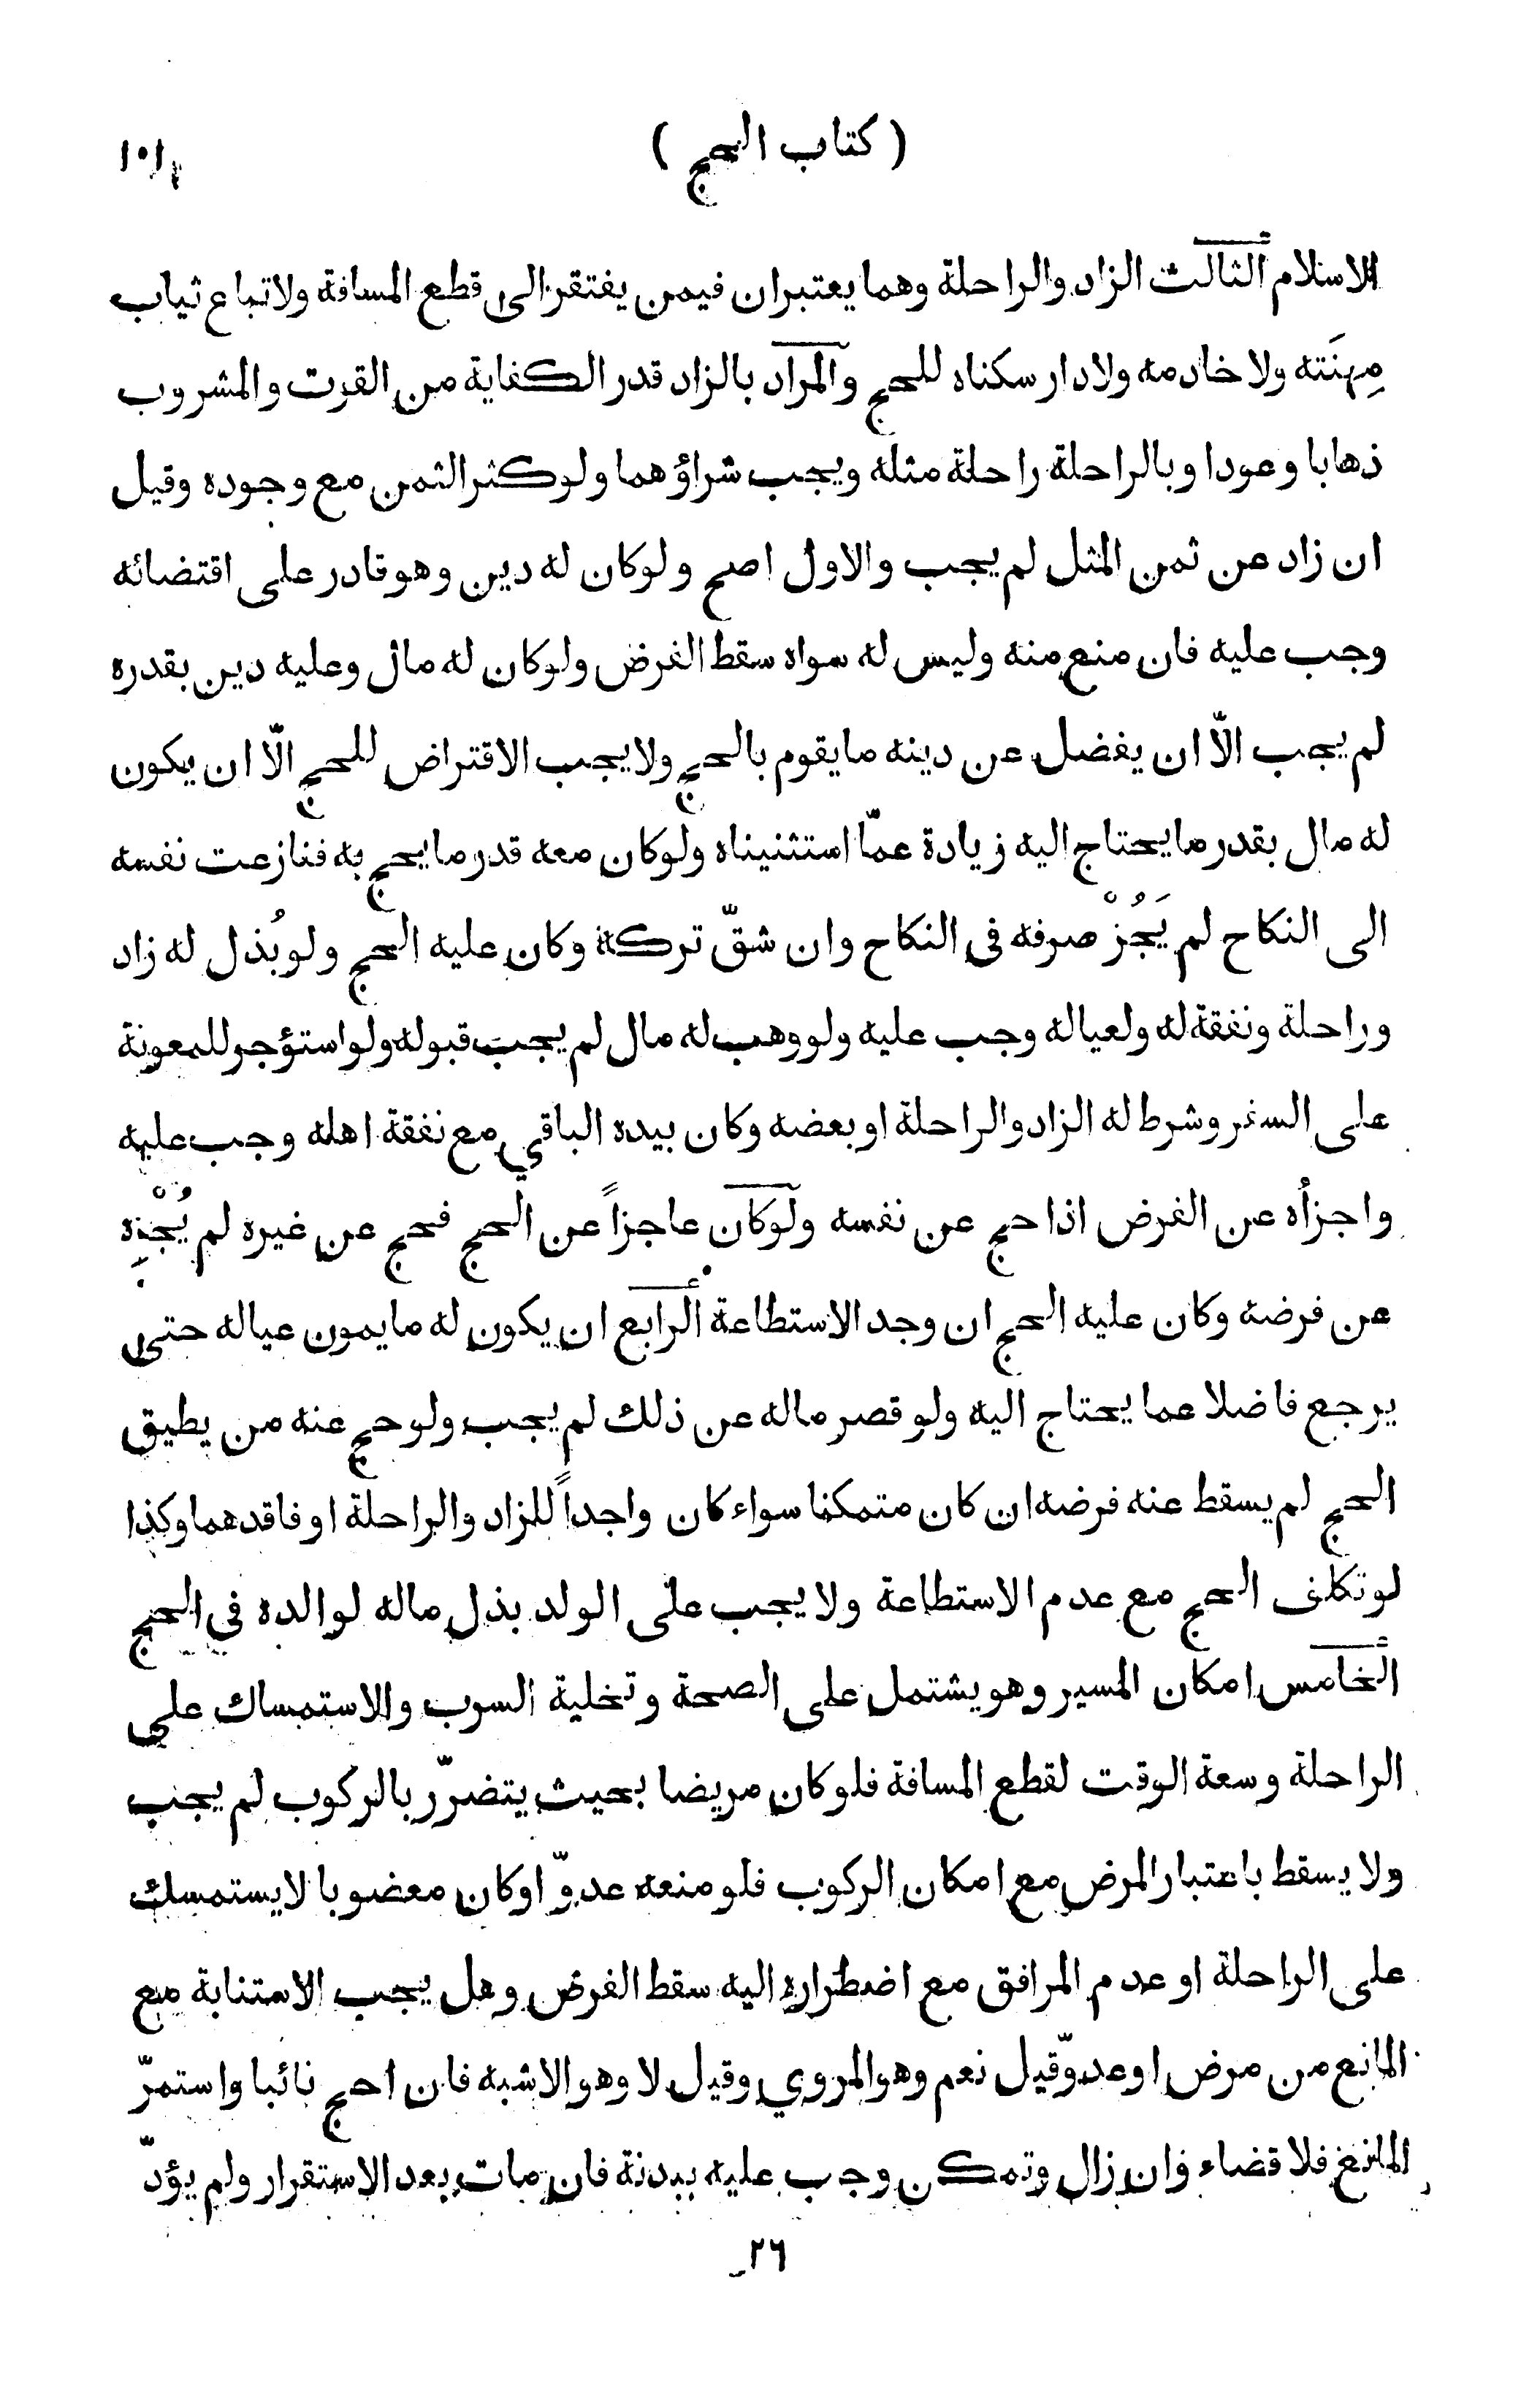 ( كتاب الحج )
١٠١
الاسلام الثالث الزاد والراحلة وهما يعتبران فيمن يفتقر الى قطع المسافة ولا تباع ثياب
مِهنَته ولا خادمه ولا دار سكناه للحج والمراد بالزاد قدر الكفاية من القوت والمشروب
ذهابا وعودا وبالراحلة راحلة مثله ويجب شراؤهما ولو كثر الثمن مع وجوده وقيل
ان زاد عن ثمن المثل لم يجب والاول اصح ولو كان له دين وهو قادر على اقتضائه
وجب عليه فان منع منه وليس له سواه سقط الفرض ولو كان له مال وعليه دين بقدره
لم يجب الّا ان يفضل عن دينه ما يقوم بالحج ولا يجب الاقتراض للحج الّا ان يكون
له مال بقدر ما يحتاج اليه زيادة عمّا استثنيناه ولو كان معه قدر ما يحج به فنازعت نفسه
الى النكاح لم يَجُزْ صرفه فى النكاح وان شقّ تركه وكان عليه الحج ولو بُذل له زاد
وراحلة ونفقة له ولعياله وجب عليه ولو وهب له مال لم يجب قبوله ولو استؤجر للمعونة
على السفر وشرط له الزاد والراحلة او بعضه وكان بيده الباقي مع نفقة اهله وجب عليه
واجزأه عن الفرض اذا حج عن نفسه ولو كان عاجزاً عن الحج فحج عن غيره لم يُجْزِه
عن فرضه وكان عليه الحج ان وجد الاستطاعة الرابع ان يكون له ما يمون عياله حتى
يرجع فاضلا عما يحتاج اليه ولو قصر ماله عن ذلك لم يجب ولو حج عنه من يطيق
الحج لم يسقط عنه فرضه ان كان متمكنا سواء كان واجداً للزاد والراحلة او فاقدهما وكذا
لو تكلف الحج مع عدم الاستطاعة ولا يجب على الولد بذل ماله لوالده فى الحج
الخامس امكان المسير وهو يشتمل على الصحة وتخلية السرب والاستمساك على
الراحلة وسعة الوقت لقطع المسافة فلو كان مريضا بحيث يتضرّر بالركوب لم يجب
ولا يسقط باعتبار المرض مع امكان الركوب فلو منعه عدوّ او كان معضوبا لا يستمسك
على الراحلة او عدم المرافق مع اضطراره اليه سقط الفرض وهل يجب الاستنابة مع
المانع من مرض او عدوّ قيل نعم وهو المروي وقيل لا وهو الاشبه فان احج نائبا واستمرّ
المانع فلا قضاء وان زال وتمكن وجب عليه ببدنة فان مات بعد الاستقرار ولم يؤدّ
٢٦